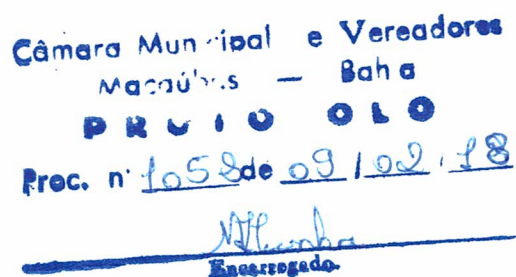 Câmara Municipal e Vereadores
Macaúbas — Bahia
PROTOCOLO
Proc. nº 1058 de 09 / 02 / 18
Encarregado